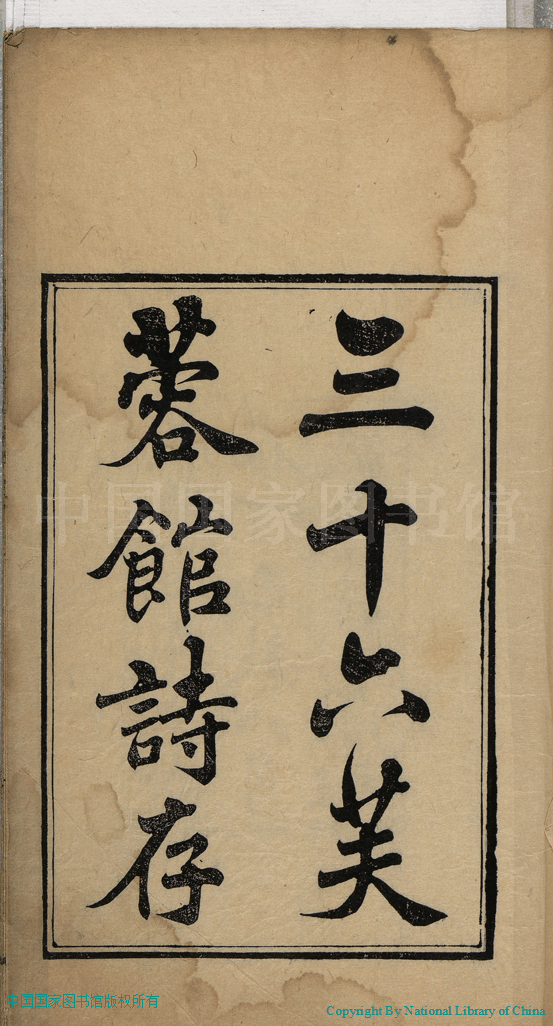 三十六芙
蓉館詩存
中国国家图书馆
中国国家图书馆版权所有
Copyright By National Library of China